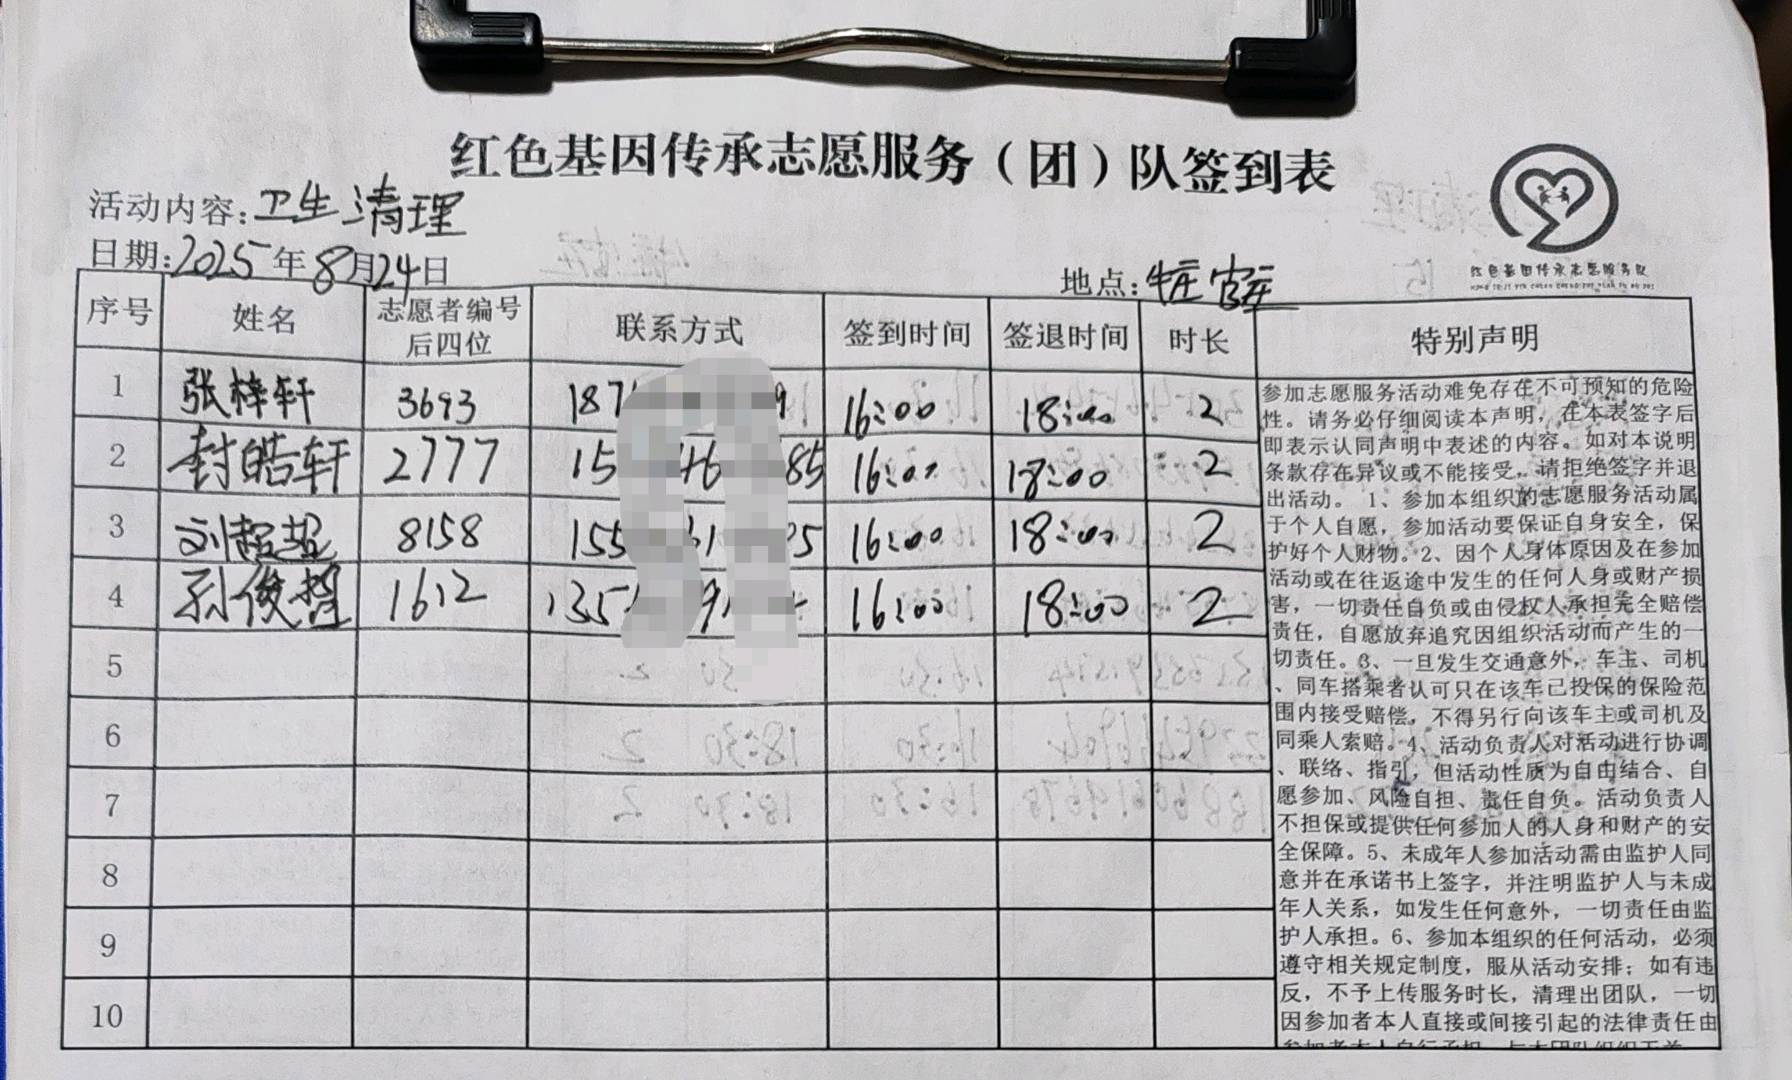 红色基因传承志愿服务（团）队签到表
活动内容：卫生清理
日期：2025年8月24日
地点：
红色基因传承志愿服务队
序号 姓名 志愿者编号后四位 联系方式 签到时间 签退时间 时长 特别声明
1 张梓轩 3693 187 9 16:00 18:00 2
2 封皓轩 2777 15 46 85 16:00 18:00 2
3 刘超超 8158 155 31 95 16:00 18:00 2
4 孙俊哲 1612 135 91 16:00 18:00 2
5
6
7
8
9
10
参加志愿服务活动难免存在不可预知的危险
性。请务必仔细阅读本声明，在本表签字后
即表示认同声明中表述的内容。如对本说明
条款存在异议或不能接受，请拒绝签字并退
出活动。1、参加本组织的志愿服务活动属
于个人自愿，参加活动要保证自身安全，保
护好个人财物。2、因个人身体原因及在参加
活动或在往返途中发生的任何人身或财产损
害，一切责任自负或由侵权人承担完全赔偿
责任，自愿放弃追究因组织活动而产生的一
切责任。3、一旦发生交通意外，车主、司机
、同车搭乘者认可只在该车已投保的保险范
围内接受赔偿，不得另行向该车主或司机及
同乘人索赔。4、活动负责人对活动进行协调
、联络、指引，但活动性质为自由结合、自
愿参加、风险自担、责任自负。活动负责人
不担保或提供任何参加人的人身和财产的安
全保障。5、未成年人参加活动需由监护人同
意并在承诺书上签字，并注明监护人与未成
年人关系，如发生任何意外，一切责任由监
护人承担。6、参加本组织的任何活动，必须
遵守相关规定制度，服从活动安排；如有违
反，不予上传服务时长，清理出团队，一切
因参加者本人直接或间接引起的法律责任由